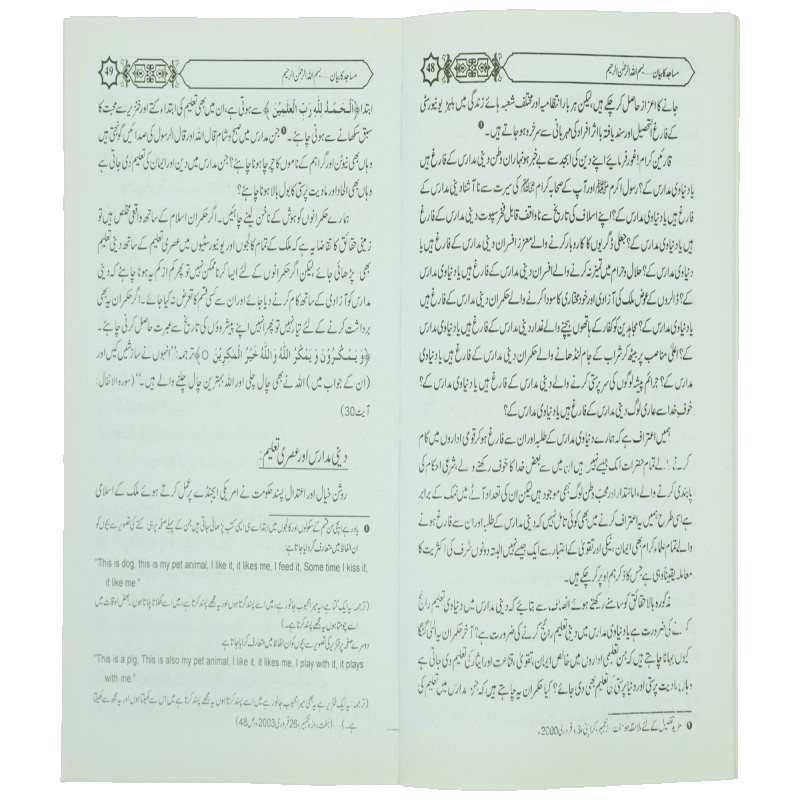 48
مساجد کا بیان.... بسم اللہ الرحمٰن الرحیم
جانے کا اعزاز حاصل کر چکے ہیں، لیکن ہر بار انتظامیہ اور مختلف شعبہ ہائے زندگی میں بلیئر یونیورسٹی
کے فارغ التحصیل اور سند یافتہ بااثر افراد کی مہربانی سے سرخرو ہو جاتے ہیں۔ ❶
قارئین کرام! غور فرمائیے اپنے دین کی ابجد سے بے خبر ہونہاران وطن دینی مدارس کے فارغ ہیں
یا دنیاوی مدارس کے؟ رسول اکرم ﷺ اور آپ کے صحابہ کرام کی سیرت سے نا آشنا دینی مدارس کے
فارغ ہیں یا دنیاوی مدارس کے؟ اپنے اسلاف کی تاریخ سے ناواقف قابل فخر سپوت دینی مدارس کے
فارغ ہیں یا دنیاوی مدارس کے؟ جعلی ڈگریوں کا کاروبار کرنے والے معزز افسران دینی مدارس کے فارغ ہیں یا
دنیاوی مدارس کے؟ حلال و حرام میں تمیز نہ کرنے والے افسران دینی مدارس کے فارغ ہیں یا دنیاوی مدارس
کے؟ ڈالروں کے عوض ملک کی آزادی اور خود مختاری کا سودا کرنے والے حکمران دینی مدارس کے فارغ ہیں یا دنیاوی
مدارس کے؟ مجاہدین کو کفار کے ہاتھوں بیچنے والے غدار دینی مدارس کے فارغ ہیں یا دنیاوی مدارس
کے؟ اعلیٰ مناصب پر بیٹھ کر شراب کے جام لنڈھانے والے حکمران دینی مدارس کے فارغ ہیں یا دنیاوی
مدارس کے؟ جرائم پیشہ لوگوں کی سرپرستی کرنے والے دینی مدارس کے فارغ ہیں یا دنیاوی مدارس کے؟
خوف خدا سے عاری لوگ دینی مدارس کے فارغ ہیں یا دنیاوی مدارس کے؟
ہمیں اعتراف ہے کہ ہمارے دنیاوی مدارس کے طلبہ اور ان سے فارغ ہو کر قومی اداروں میں کام
کرنے والے تمام حضرات ایک جیسے نہیں ہیں ان میں سے بعض خدا کا خوف رکھنے والے، شرعی احکام کی
پابندی کرنے والے، امانتدار اور محب وطن لوگ بھی موجود ہیں لیکن ان کی تعداد آٹے میں نمک کے برابر
ہے اسی طرح ہمیں یہ اعتراف کرنے میں بھی کوئی تامل نہیں کہ دینی مدارس کے طلبہ اور ان سے فارغ ہونے
والے تمام علماء کرام بھی ایمان، نیکی اور تقویٰ کے اعتبار سے ایک جیسے نہیں البتہ دونوں طرف کی اکثریت کا
معاملہ یقیناً وہی ہے جس کا ذکر ہم اوپر کر چکے ہیں۔
مذکورہ بالا حقائق کو سامنے رکھتے ہوئے انصاف سے بتائیے کہ دینی مدارس میں دنیاوی تعلیم رائج
کرنے کی ضرورت ہے یا دنیاوی مدارس میں دینی تعلیم رائج کرنے کی ضرورت ہے؟ آخر حکمران یہ الٹی گنگا
کیوں بہانا چاہتے ہیں کہ جن تعلیمی اداروں میں خالص ایمان، تقویٰ، قناعت اور ایثار کی تعلیم دی جاتی ہے
وہاں مادیت پرستی اور دنیا پرستی کی تعلیم بھی دی جائے؟ کیا حکمران یہ چاہتے ہیں کہ جن مدارس میں تعلیم کی
❶ مزید تفصیل کے لئے ملاحظہ ہو ہفت روزہ تکبیر، کراچی، فروری 2000ء
49
مساجد کا بیان.... بسم اللہ الرحمٰن الرحیم
ابتدا ﴿اَلْحَمْدُ لِلّٰهِ رَبِّ الْعٰلَمِيْنَ﴾ سے ہوتی ہے، ان میں بھی تعلیم کی ابتداء کتے اور خنزیر سے محبت کا
سبق سکھانے سے ہونی چاہئے۔ ❶ جن مدارس میں صبح و شام قال اللہ اور قال الرسول کی صدائیں گونجتی ہیں
وہاں بھی نیوٹن اور گراہم کے ناموں کا چرچا ہونا چاہئے؟ جن مدارس میں دین اور ایمان کی تعلیم دی جاتی ہے
وہاں بھی الحاد اور مادیت پرستی کا بول بالا ہونا چاہئے؟
ہمارے حکمرانوں کو ہوش کے ناخن لینے چاہئیں۔ اگر حکمران اسلام کے ساتھ واقعی مخلص ہیں تو
زمینی حقائق کا تقاضا یہ ہے کہ ملک کے تمام کالجوں اور یونیورسٹیوں میں عصری تعلیم کے ساتھ دینی تعلیم
بھی پڑھائی جائے لیکن اگر حکمرانوں کے لئے ایسا کرنا ممکن نہیں تو پھر کم از کم یہ ہونا چاہئے کہ دینی
مدارس کو آزادی کے ساتھ کام کرنے دیا جائے اور ان سے کسی قسم کا تعرض نہ کیا جائے۔ اگر حکمران یہ بھی
برداشت کرنے کے لئے تیار نہیں تو پھر انہیں اپنے پیشروؤں کی تاریخ سے عبرت حاصل کرنی چاہئے۔
﴿وَ يَمْكُرُوْنَ وَ يَمْكُرُ اللّٰهُ وَاللّٰهُ خَيْرُ الْمٰكِرِيْنَ ۝﴾ ترجمہ: ”انہوں نے سازشیں کیں اور
(ان کے جواب میں) اللہ نے بھی چال چلی اور اللہ بہترین چال چلنے والے ہیں۔“ (سورہ الانفال:
آیت 30)
دینی مدارس اور عصری تعلیم:
روشن خیال اور اعتدال پسند حکومت نے امریکی ایجنڈے پر عمل کرتے ہوئے ملک کے اسلامی
❶ یاد رہے بیکن ہاؤس قسم کے سکولوں اور کالجوں میں ابتدا سے ہی ایسی کتب پڑھائی جاتی ہیں جن کے پہلے صفحہ پر ہی کتے کی تصویر سے بچوں کو
ان الفاظ میں متعارف کروایا جاتا ہے:
"This is dog, this is my pet animal, I like it, it likes me, I feed it, Some time I kiss it,
it like me."
(ترجمہ: یہ ایک کتا ہے، یہ میرا محبوب جانور ہے، میں اسے پسند کرتا ہوں یہ مجھے پسند کرتا ہے، میں اسے کھلاتا پلاتا ہوں۔ بعض اوقات میں
اسے چومتا ہوں یہ مجھے پسند کرتا ہے۔)
دوسرے صفحہ پر خنزیر کی تصویر سے بچوں کو ان الفاظ میں متعارف کروایا جاتا ہے۔
"This is a pig. This is also my pet animal, I like it, it likes me, I play with it, it plays
with me."
(ترجمہ: یہ ایک خنزیر ہے یہ بھی میرا محبوب جانور ہے میں اسے پسند کرتا ہوں یہ مجھے پسند کرتا ہے میں اس سے کھیلتا ہوں اور یہ مجھ سے کھیلتا
ہے۔).... (ہفت روزہ تکبیر، 26 فروری 2003ء، ص 48)